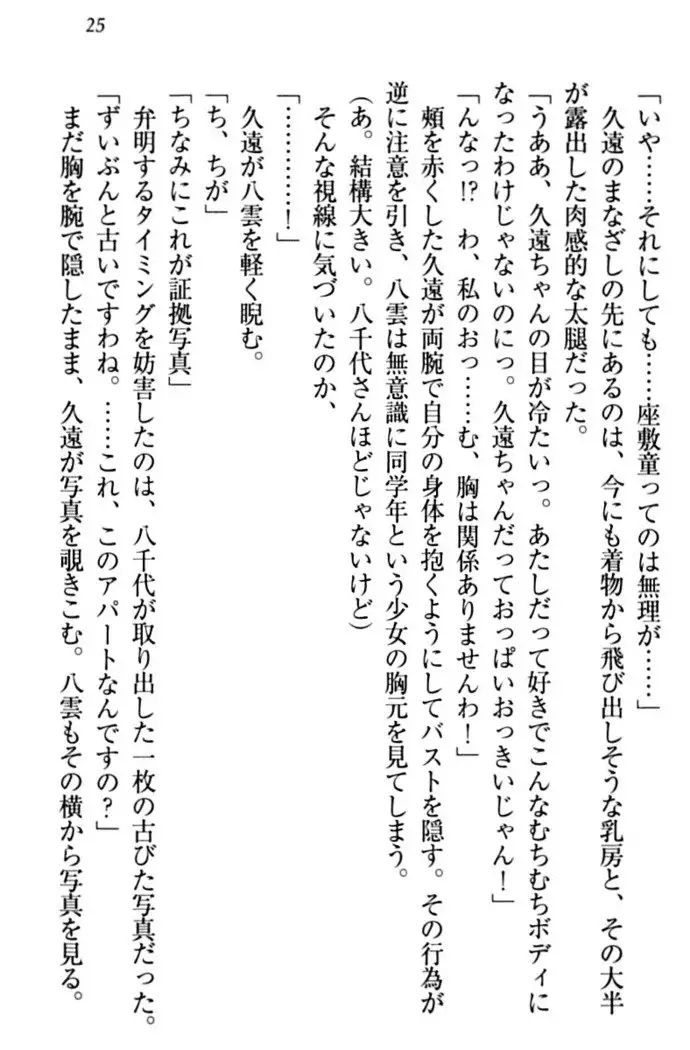 25
「いや……それにしても……座敷童ってのは無理が……」
久遠のまなざしの先にあるのは、今にも着物から飛び出しそうな乳房と、その大半
が露出した肉感的な太腿だった。
「うああ、久遠ちゃんの目が冷たいっ。あたしだって好きでこんなむちむちボディに
なったわけじゃないのにっ。久遠ちゃんだっておっぱいおっきいじゃん！」
「んなっ!?　わ、私のおっ……む、胸は関係ありませんわ！」
頬を赤くした久遠が両腕で自分の身体を抱くようにしてバストを隠す。その行為が
逆に注意を引き、八雲は無意識に同学年という少女の胸元を見てしまう。
(あ。結構大きい。八千代さんほどじゃないけど)
そんな視線に気づいたのか、
「…………！」
久遠が八雲を軽く睨む。
「ち、ちが」
「ちなみにこれが証拠写真」
弁明するタイミングを妨害したのは、八千代が取り出した一枚の古びた写真だった。
「ずいぶんと古いですわね。……これ、このアパートなんですの？」
まだ胸を腕で隠したまま、久遠が写真を覗きこむ。八雲もその横から写真を見る。